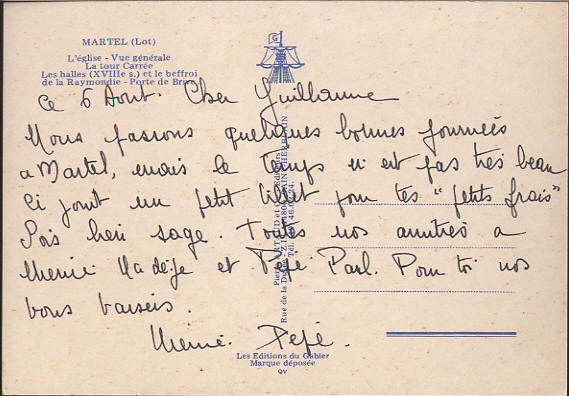 MARTEL (Lot)
L'église - Vue générale
La tour Carrée
Les halles (XVIIIe s.) et le beffroi
de la Raymondie - Porte de Brive
G
Ce 6 Août. Cher Guillaume
Nous passons quelques bonnes journées
a Martel, mais le temps n'est pas très beau
Ci joint un petit billet pour tes "petits frais"
Sois bien sage. Toutes nos amitiés a
Mémé Nadège et Pépé Paul. Pour toi nos
bons baisers.
Mémé Pépé.
Les Editions du Gabier
Marque déposée
QV